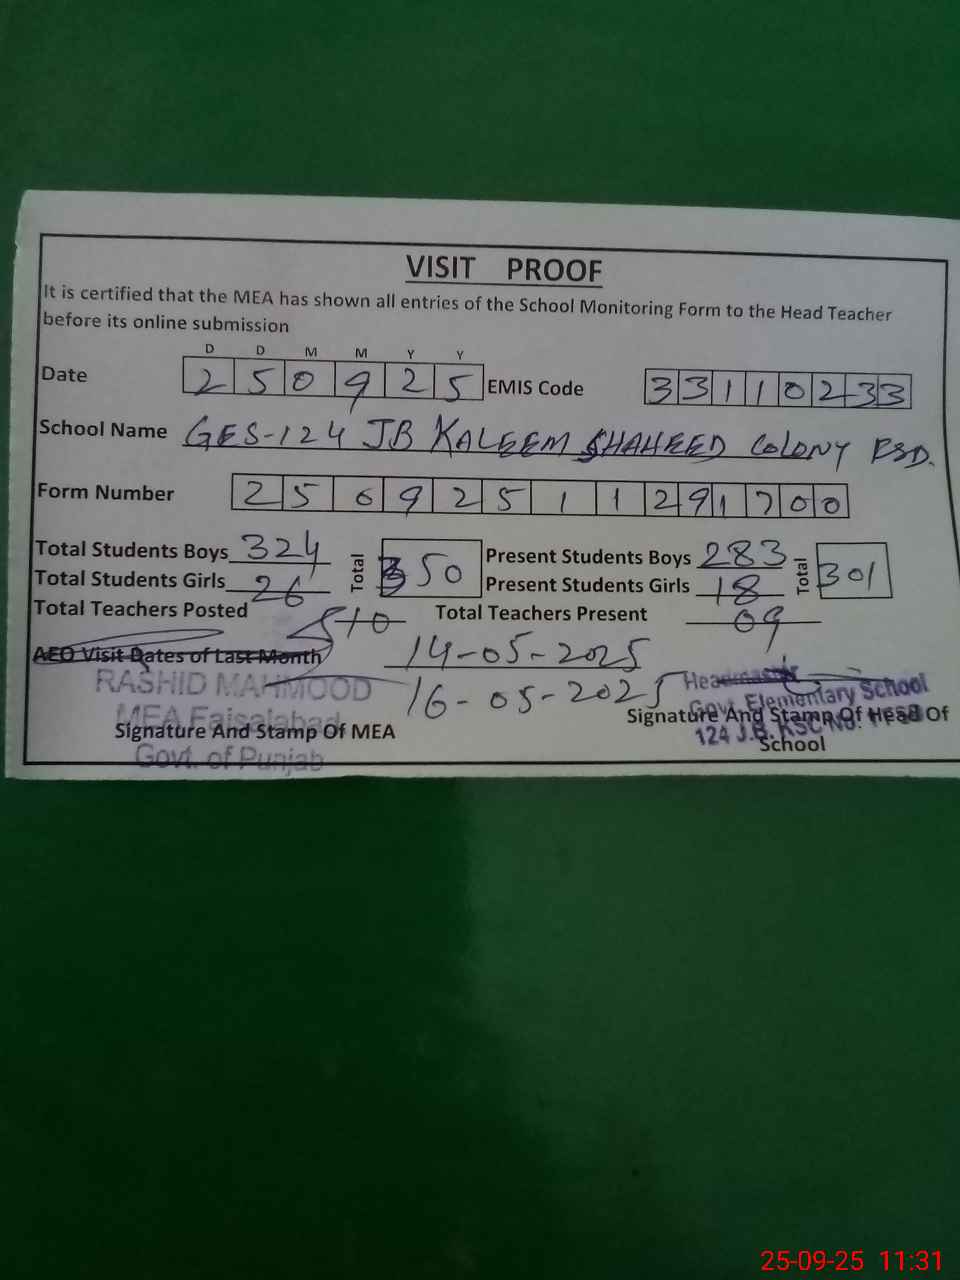 VISIT PROOF
It is certified that the MEA has shown all entries of the School Monitoring Form to the Head Teacher
before its online submission
D D M M Y Y
Date 2 5 0 9 2 5 EMIS Code 3 3 1 1 0 2 3 3
School Name GES-124 JB KALEEM SHAHEED COLONY FSD.
Form Number 2 5 6 9 2 5 1 1 2 9 1 7 0 0
Total Students Boys 324 Total 350 Present Students Boys 283 Total 301
Total Students Girls 26 Present Students Girls 18
Total Teachers Posted 10 Total Teachers Present 09
AEO Visit Dates of Last Month 14-05-2025
16-05-2025
RASHID MAHMOOD
MEA Faisalabad
Govt. of Punjab
Signature And Stamp Of MEA
Headmaster
Govt. Elementary School
124 J.B. KSC No.
Signature And Stamp Of Head Of
School
25-09-25 11:31